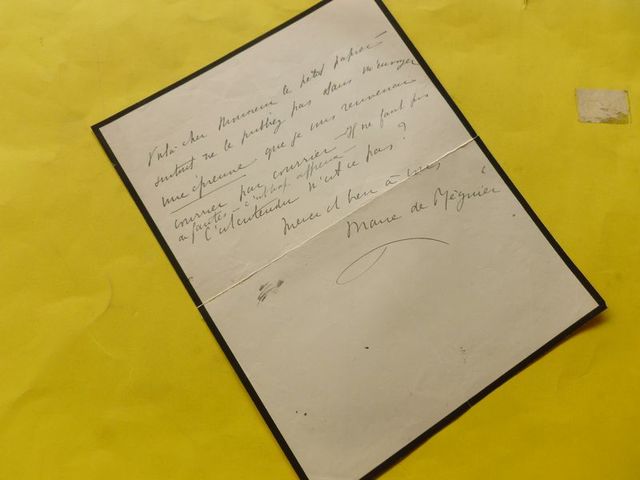 Voilà cher Monsieur le petit papier –
surtout ne le publiez pas sans m'envoyer
une épreuve que je vous renverrai
courrier par courrier – Il ne faut pas
de fautes – c'est trop affreux –
C'est entendu n'est ce pas ?
Merci et bien à vous
Marie de Régnier